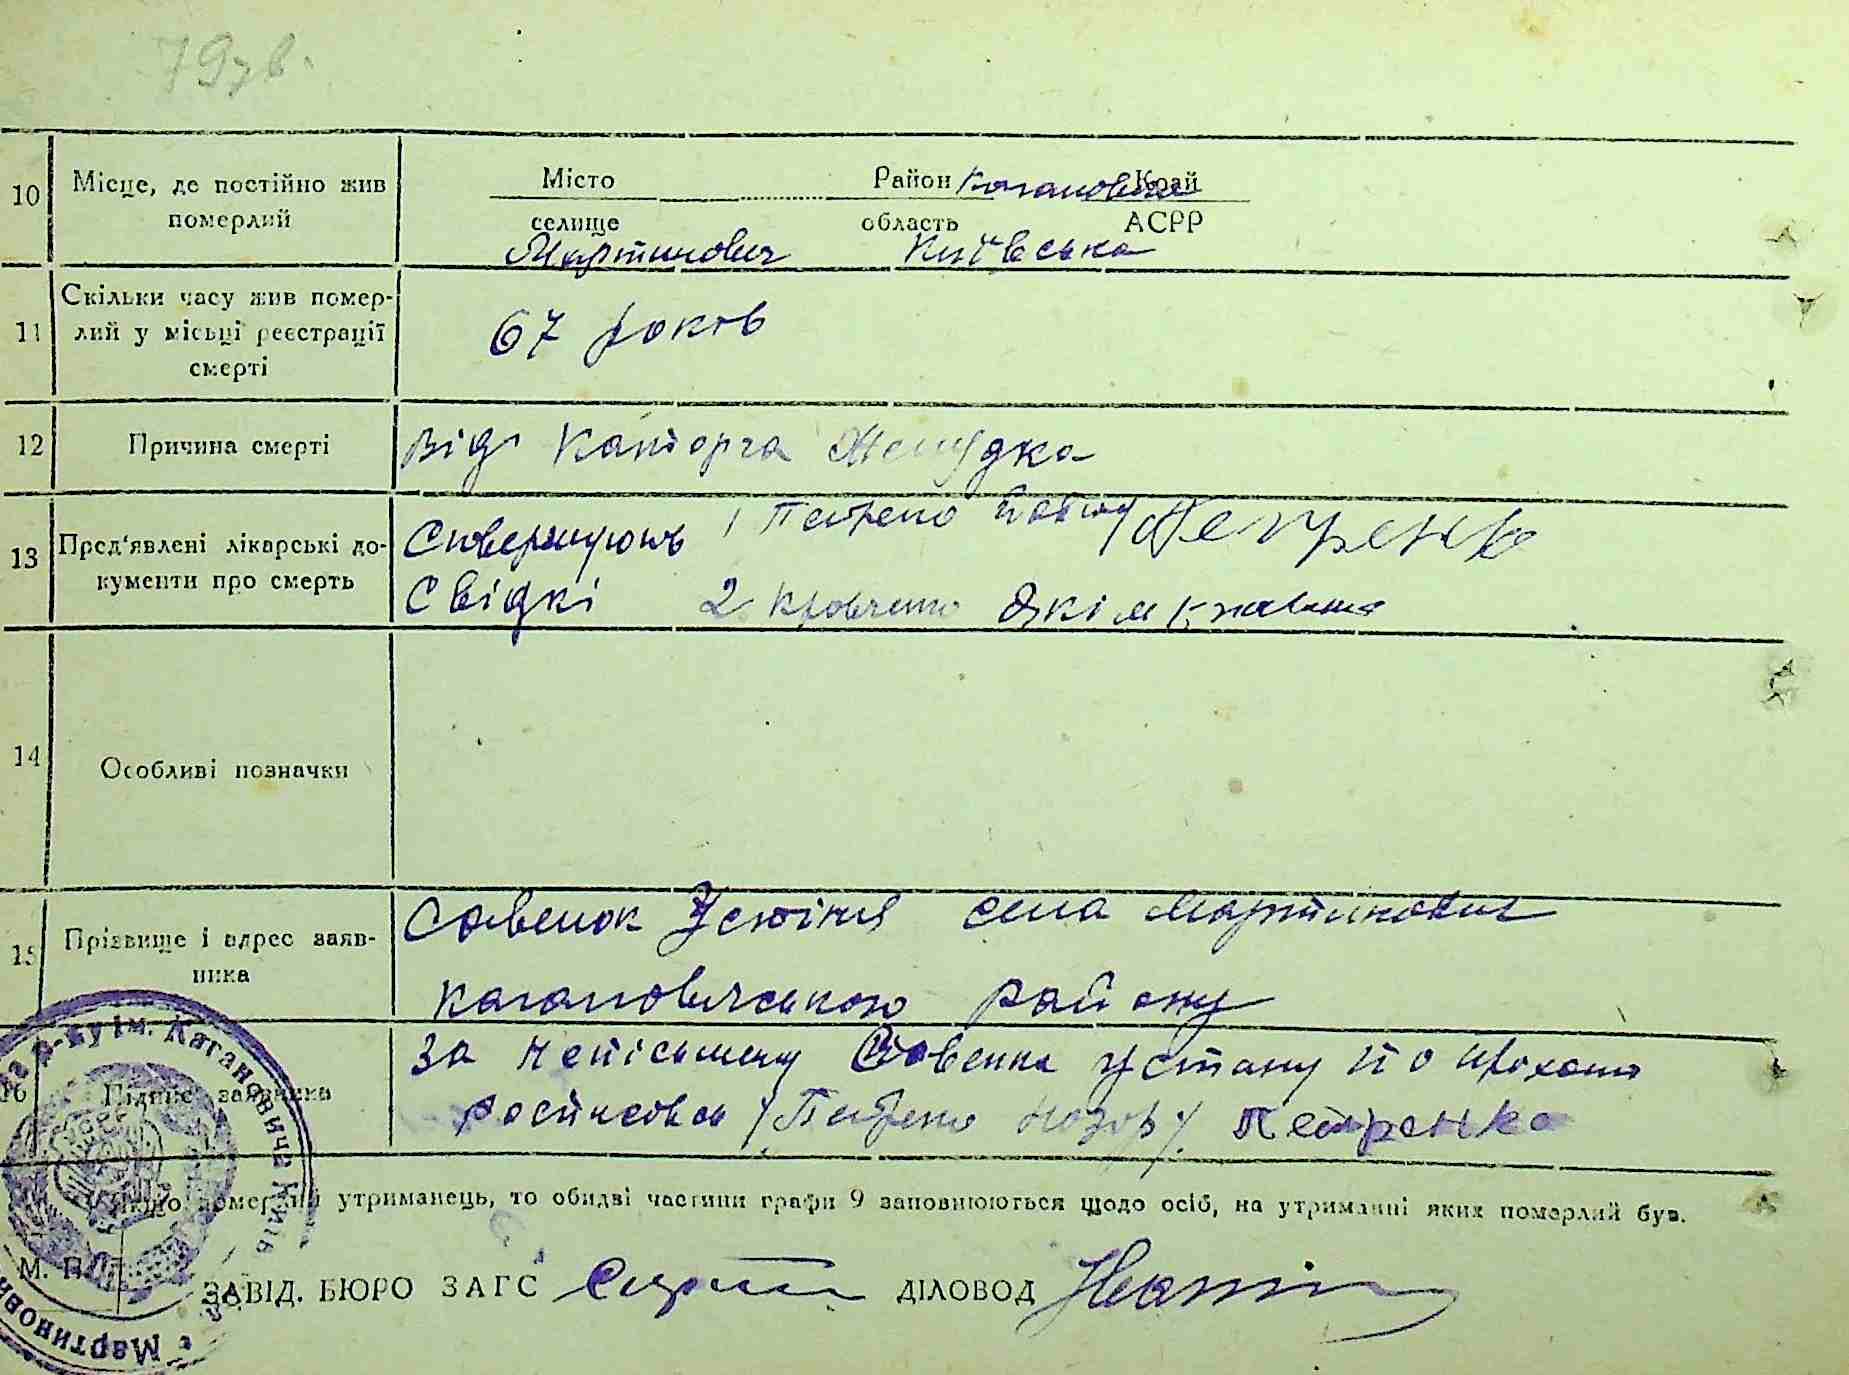 79зв.
10 Місце, де постійно жив померлий
Місто Район Кагановича Край
селище область АСРР
Мартинович Київська
11 Скільки часу жив помер-
лий у місьці реєстрації
смерті
67 років
12 Причина смерті
Від Каторга Желудка
13 Пред'явлені лікарські до-
кументи про смерть
1 Петренко Петренко
Свідкі 2 Кравченко Якім Кравченко
14 Особливі позначки
15 Прізвище і адрес заяв-
ника
Савенок Устіния села Мартинович
Кагановичського району
16 Підпис заявника
За неписьмену Савенка Устину по прохання
росписовсь /Петренко Назор/. Петренко
Якщо померлий утриманець, то обидві частини графи 9 заповнюються щодо осіб, на утриманні яких померлий був.
М. П. ЗАВІД. БЮРО ЗАГС ДІЛОВОД
р-ну ім. Кагановича Київ
с Мартинови